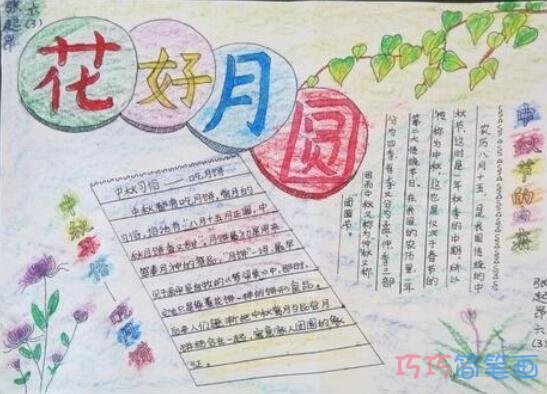 张起昂
六(3)
花好月圆
中秋节的由来
农历八月十五,是我国传统的中
秋节,这时是一年秋季的中期,所以
被称为中秋,这也是仅次于春节的
第二大传统节日,在我国的农历里一年
分为四季,每季又分为孟、仲、季三部
因而中秋又称为仲秋又称
团圆节。
中秋习俗——吃月饼
中秋都有吃月饼,赏月的
习俗,俗话有“八月十五月正圆,中
秋月饼香又甜”,月饼最初是用来
祭奉月神的祭品,“月饼”一词,最早
见于南宋吴自牧的《梦粱录》中,那时,
它也只是像菱花饼一样的饼形食品。
后来人们逐渐把中秋赏月与品尝月
饼结合在一起,寓意家人团圆的象
征。
中秋习俗—吃月饼
张起昂 六(3)
巧巧简笔画